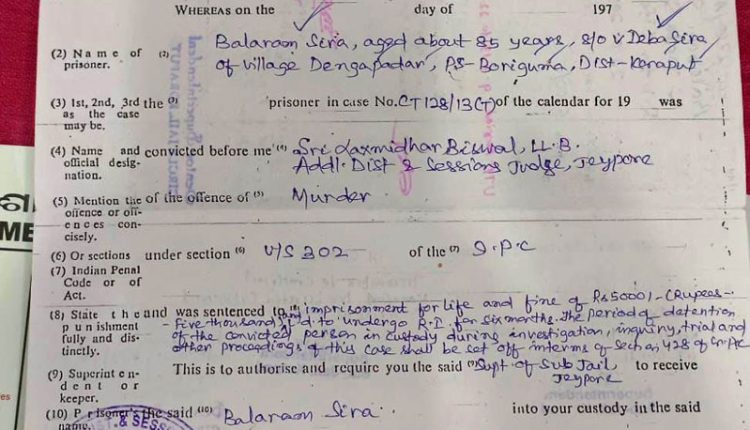 WHEREAS on the day of 197
(2) Name of prisoner. (2) Balaraam Sira, aged about 85 years, s/o v Deba Sira
of village Dengapadar, PS- Boriguma, Dist- Koraput
(3) 1st, 2nd, 3rd the (3) prisoner in case No. CT 128/13(T) of the calendar for 19 was
as the case
may be.
(4) Name and convicted before me (4) Sri Laxmidhar Biswal, LL.B.
official desig- Addl. Dist & Sessions Judge, Jeypore
nation.
(5) Mention the of the offence of (5) Murder
offence or off-
ences con-
cisely.
(6) Or sections under section (6) U/S 302 of the (7) I.P.C
(7) Indian Penal
Code or of
Act.
(8) State the and was sentenced to (8) imprisonment for life and fine of Rs 5000/- (Rupees-
punishment - Five thousand) I/d to undergo R.I for six months. The period of detention
fully and dis- of the convicted person in custody during investigation, inquiry, trial and
tinctly. other proceedings of this case shall be set off interms of Section 428 of Cr.P.C
(9) Superinten- This is to authorise and require you the said (9) Supt of Sub Jail, to receive
dent or Jeypore
keeper.
(10) Prisoner's the said (10) Balaraam Sira. into your custody in the said
name.
& SESS
ME
es